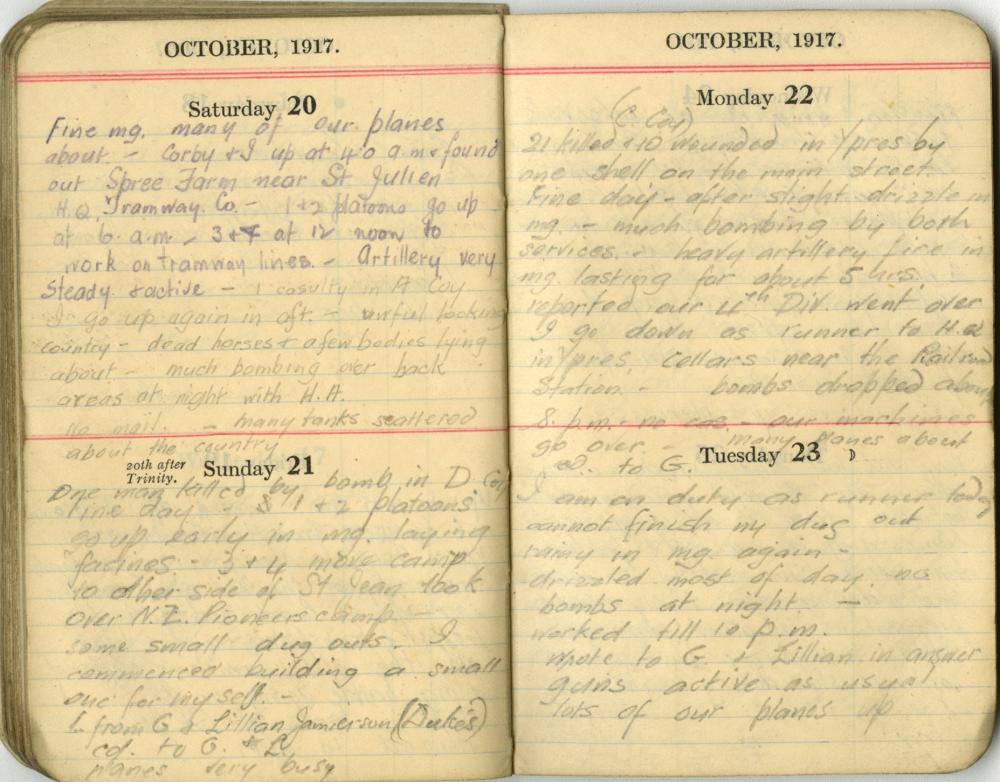 OCTOBER, 1917.
Saturday 20
Fine mg. many of our planes
about - Corby & I up at 4.0 a.m & found
out Spree Farm near St Julien
H.Q. Tramway Co. - 1 & 2 platoons go up
at 6. a.m - 3 & 4 at 12 noon to
work on tramway lines. - Artillery very
Steady & active - 1 casulty in A Coy
I go up again in aft. - awful looking
country - dead horses & a few bodies lying
about - much bombing over back
areas at night with H.A.
no mail. - many tanks scattered
about the country
20th after
Trinity.
Sunday 21
One man killed by bomb in D. Coy
Fine day - 1 & 2 platoons
go up early in mg. laying
facines - 3 & 4 move camp
to other side of St Jean took
over N.Z. Pioneers camp -
some small dug outs. I
commenced building a small
one for myself. -
L. from G & Lillian Jamierson (Duke's)
cd. to G. & L.
planes very busy
OCTOBER, 1917.
Monday 22
(C. Coy)
21 killed & 10 wounded in Ypres by
one shell on the main street.
Fine day - after slight drizzle in
mg. - much bombing by both
services. & heavy artillery fire in
mg. lasting for about 5 hrs.
reported our 4th Div. went over
I go down as runner to H.Q
in Ypres. Cellars near the Railroad
Station. - bombs dropped about
8. p.m. - no cas. - our machines
go over. - many planes about
cd. to G.
Tuesday 23
I am on duty as runner today
cannot finish my dug out
rainy in mg again -
drizzled most of day. no
bombs at night. -
worked till 10 p.m.
wrote to G. & Lillian in answer
guns active as usual
lots of our planes up